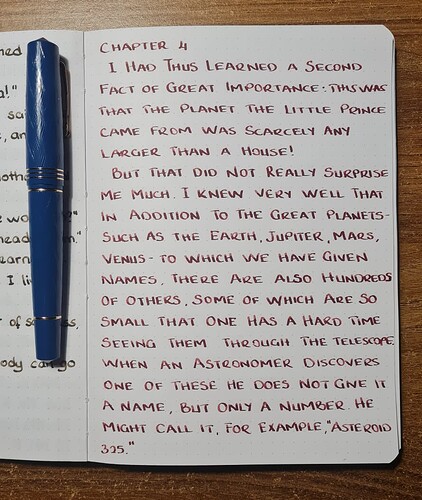 CHAPTER 4
I HAD THUS LEARNED A SECOND
FACT OF GREAT IMPORTANCE: THIS WAS
THAT THE PLANET THE LITTLE PRINCE
CAME FROM WAS SCARCELY ANY
LARGER THAN A HOUSE!
BUT THAT DID NOT REALLY SURPRISE
ME MUCH. I KNEW VERY WELL THAT
IN ADDITION TO THE GREAT PLANETS-
SUCH AS THE EARTH, JUPITER, MARS,
VENUS- TO WHICH WE HAVE GIVEN
NAMES, THERE ARE ALSO HUNDREDS
OF OTHERS, SOME OF WHICH ARE SO
SMALL THAT ONE HAS A HARD TIME
SEEING THEM THROUGH THE TELESCOPE.
WHEN AN ASTRONOMER DISCOVERS
ONE OF THESE HE DOES NOT GIVE IT
A NAME, BUT ONLY A NUMBER. HE
MIGHT CALL IT, FOR EXAMPLE, "ASTEROID
325."